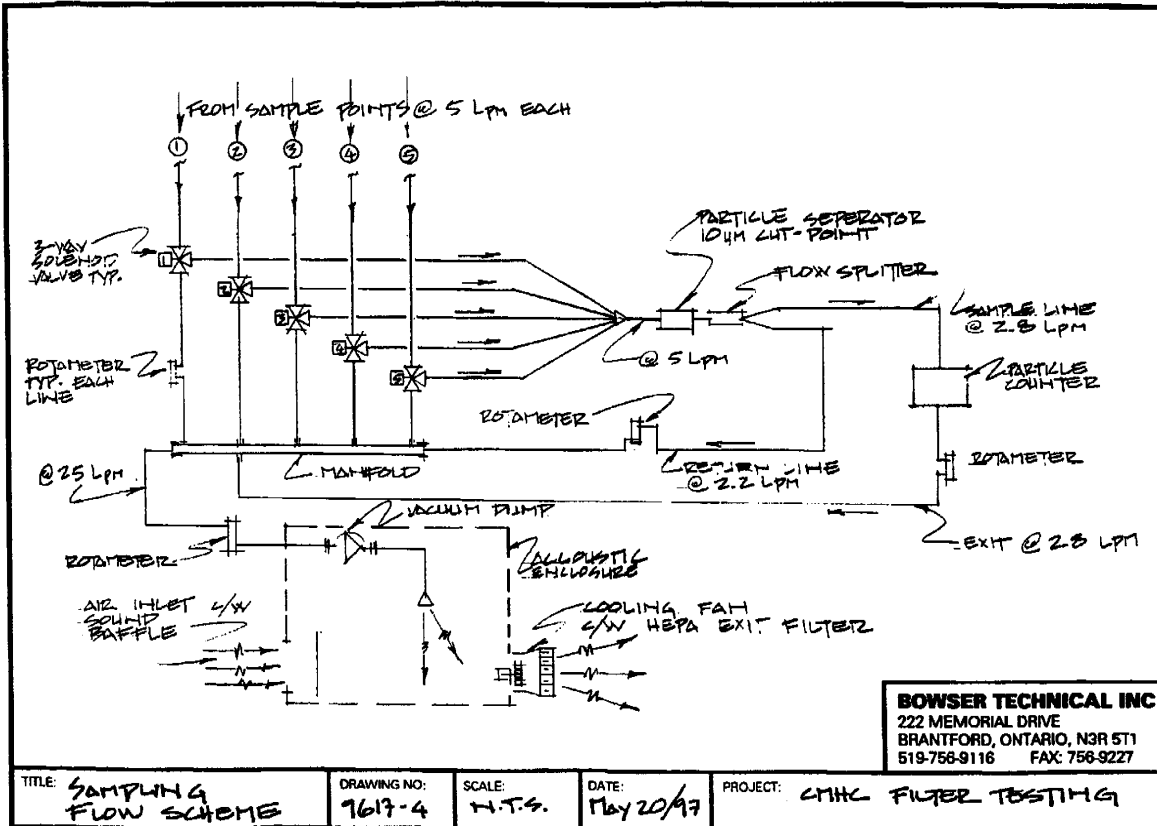 FROM SAMPLE POINTS @ 5 LPM EACH
1 2 3 4 5
3-WAY
SOLENOID
VALVE TYP.
1
2
3
4
5
PARTICLE SEPERATOR
10µM CUT-POINT
FLOW SPLITTER
SAMPLE LINE
@ 2.8 LPM
@ 5 LPM
ROTAMETER
TYP. EACH
LINE
PARTICLE
COUNTER
ROTAMETER
MANIFOLD
RETURN LINE
@ 2.2 LPM
ROTAMETER
@ 25 LPM
VACUUM PUMP
ROTAMETER
ACCOUSTIC
ENCLOSURE
EXIT @ 2.8 LPM
AIR INLET C/W
SOUND
BAFFLE
COOLING FAN
C/W HEPA EXIT FILTER
BOWSER TECHNICAL INC
222 MEMORIAL DRIVE
BRANTFORD, ONTARIO, N3R 5T1
519-756-9116 FAX: 756-9227
TITLE: SAMPLING
FLOW SCHEME
DRAWING NO:
9617-4
SCALE:
N.T.S.
DATE:
May 20/97
PROJECT: CMHC FILTER TESTING